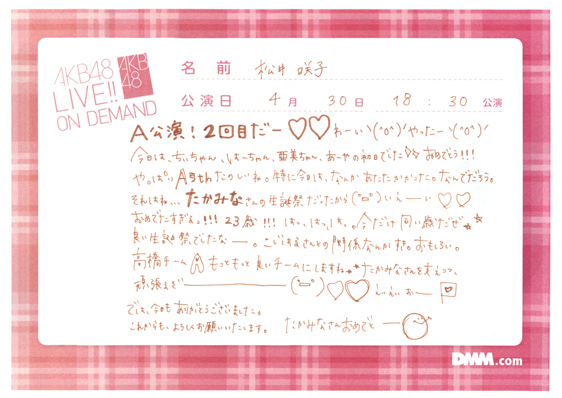 AKB48
LIVE!!
ON DEMAND
AKB
48
名前 松井 咲子
公演日 4月 30日 18:30 公演
A公演！2回目だー♡♡わーいヽ(^o^)ﾉやったーヽ(^o^)ﾉ
今日は、ちぃちゃん、しほーちゃん、亜美ちゃん、あーやの初日でした おめでとう!!!
や。ぱり A5th たのしいね。特に今日は、なんかあたたかかった。なんでだろう。
それはね... たかみなさんの生誕祭だったから いえーい ♡♡
おめでたすぎるっ!!! 23歳!!! はっ、はっ、はっ。今だけ同い歳だぜ★★
良い生誕祭でしたなー。こじはるさんとの関係なんか好き。おもしろい。
高橋チームA もっともっと良いチームにしますね★★ たかみなさんを支えつつ、
頑張るぞー ♡♡ えいえいおー
では、今日もありがとうございました。
これからも、よろしくお願いいたします。 たかみなさんおめでとー
DMM.com